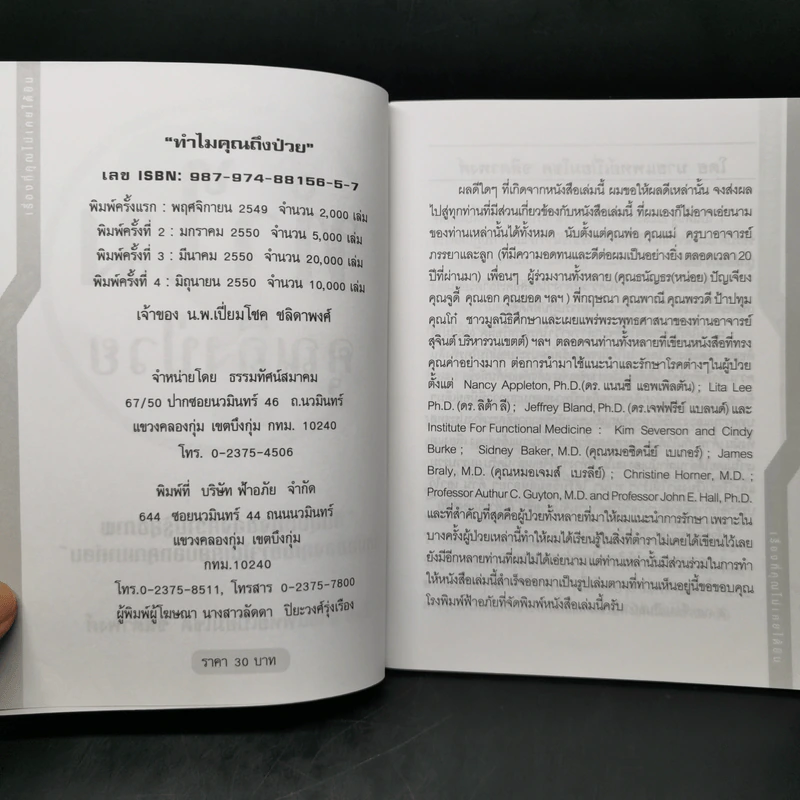 "ทำไมคุณถึงป่วย"
เลข ISBN: 987-974-88156-5-7
พิมพ์ครั้งแรก : พฤศจิกายน 2549 จำนวน 2,000 เล่ม
พิมพ์ครั้งที่ 2 : มกราคม 2550 จำนวน 5,000 เล่ม
พิมพ์ครั้งที่ 3 : มีนาคม 2550 จำนวน 20,000 เล่ม
พิมพ์ครั้งที่ 4 : มิถุนายน 2550 จำนวน 10,000 เล่ม
เจ้าของ น.พ.เปี่ยมโชค ชลิดาพงศ์
จำหน่ายโดย ธรรมทัศน์สมาคม
67/50 ปากซอยนวมินทร์ 46 ถ.นวมินทร์
แขวงคลองกุ่ม เขตบึงกุ่ม กทม. 10240
โทร. 0-2375-4506
พิมพ์ที่ บริษัท ฟ้าอภัย จำกัด
644 ซอยนวมินทร์ 44 ถนนนวมินทร์
แขวงคลองกุ่ม เขตบึงกุ่ม
กทม.10240
โทร.0-2375-8511, โทรสาร 0-2375-7800
ผู้พิมพ์ผู้โฆษณา นางสาวลัดดา ปิยะวงศ์รุ่งเรือง
ราคา 30 บาท
เรื่องที่คุณไม่เคยได้ยิน
ผลดีใดๆ ที่เกิดจากหนังสือเล่มนี้ ผมขอให้ผลดีเหล่านั้น จงส่งผล
ไปสู่ทุกท่านที่มีส่วนเกี่ยวข้องกับหนังสือเล่มนี้ ที่ผมเองก็ไม่อาจเอ่ยนาม
ของท่านเหล่านั้นได้ทั้งหมด นับตั้งแต่คุณพ่อ คุณแม่ ครูบาอาจารย์
ภรรยาและลูก (ที่มีความอดทนและดีต่อผมเป็นอย่างยิ่ง ตลอดเวลา 20
ปีที่ผ่านมา) เพื่อนๆ ผู้ร่วมงานทั้งหลาย (คุณธนัญธร(หน่อย) ปัญเจียง
คุณจูดี้ คุณเอก คุณยอด ฯลฯ ) พี่กฤษณา คุณพาณี คุณพรวดี ป้าปทุม
คุณโก๋ ชาวมูลนิธิศึกษาและเผยแพร่พระพุทธศาสนาของท่านอาจารย์
สุจินต์ บริหารวนเขตต์) ฯลฯ ตลอดจนท่านทั้งหลายที่เขียนหนังสือที่ทรง
คุณค่าอย่างมาก ต่อการนำมาใช้แนะนำและรักษาโรคต่างๆในผู้ป่วย
ตั้งแต่ Nancy Appleton, Ph.D.(ดร. แนนซี่ แอพเพิลตัน) ; Lita Lee
Ph.D. (ดร. ลิต้า ลี) ; Jeffrey Bland, Ph.D. (ดร.เจฟฟรีย์ แบลนด์) และ
Institute For Functional Medicine : Kim Severson and Cindy
Burke ; Sidney Baker, M.D. (คุณหมอซิดนีย์ เบเกอร์) ; James
Braly, M.D. (คุณหมอเจมส์ เบรลีย์) ; Christine Horner, M.D. ;
Professor Authur C. Guyton, M.D. and Professor John E. Hall, Ph.D.
และที่สำคัญที่สุดคือผู้ป่วยทั้งหลายที่มาให้ผมแนะนำการรักษา เพราะใน
บางครั้งผู้ป่วยเหล่านี้ ทำให้ผมได้เรียนรู้ในสิ่งที่ตำราไม่เคยได้เขียนไว้เลย
ยังมีอีกหลายท่านที่ผมไม่ได้เอ่ยนาม แต่ท่านเหล่านั้นมีส่วนร่วมในการทำ
ให้หนังสือเล่มนี้สำเร็จออกมาเป็นรูปเล่มตามที่ท่านเห็นอยู่นี้ขอขอบคุณ
โรงพิมพ์ฟ้าอภัยที่จัดพิมพ์หนังสือเล่มนี้ครับ
เรื่องที่คุณไม่เคยได้ยิน